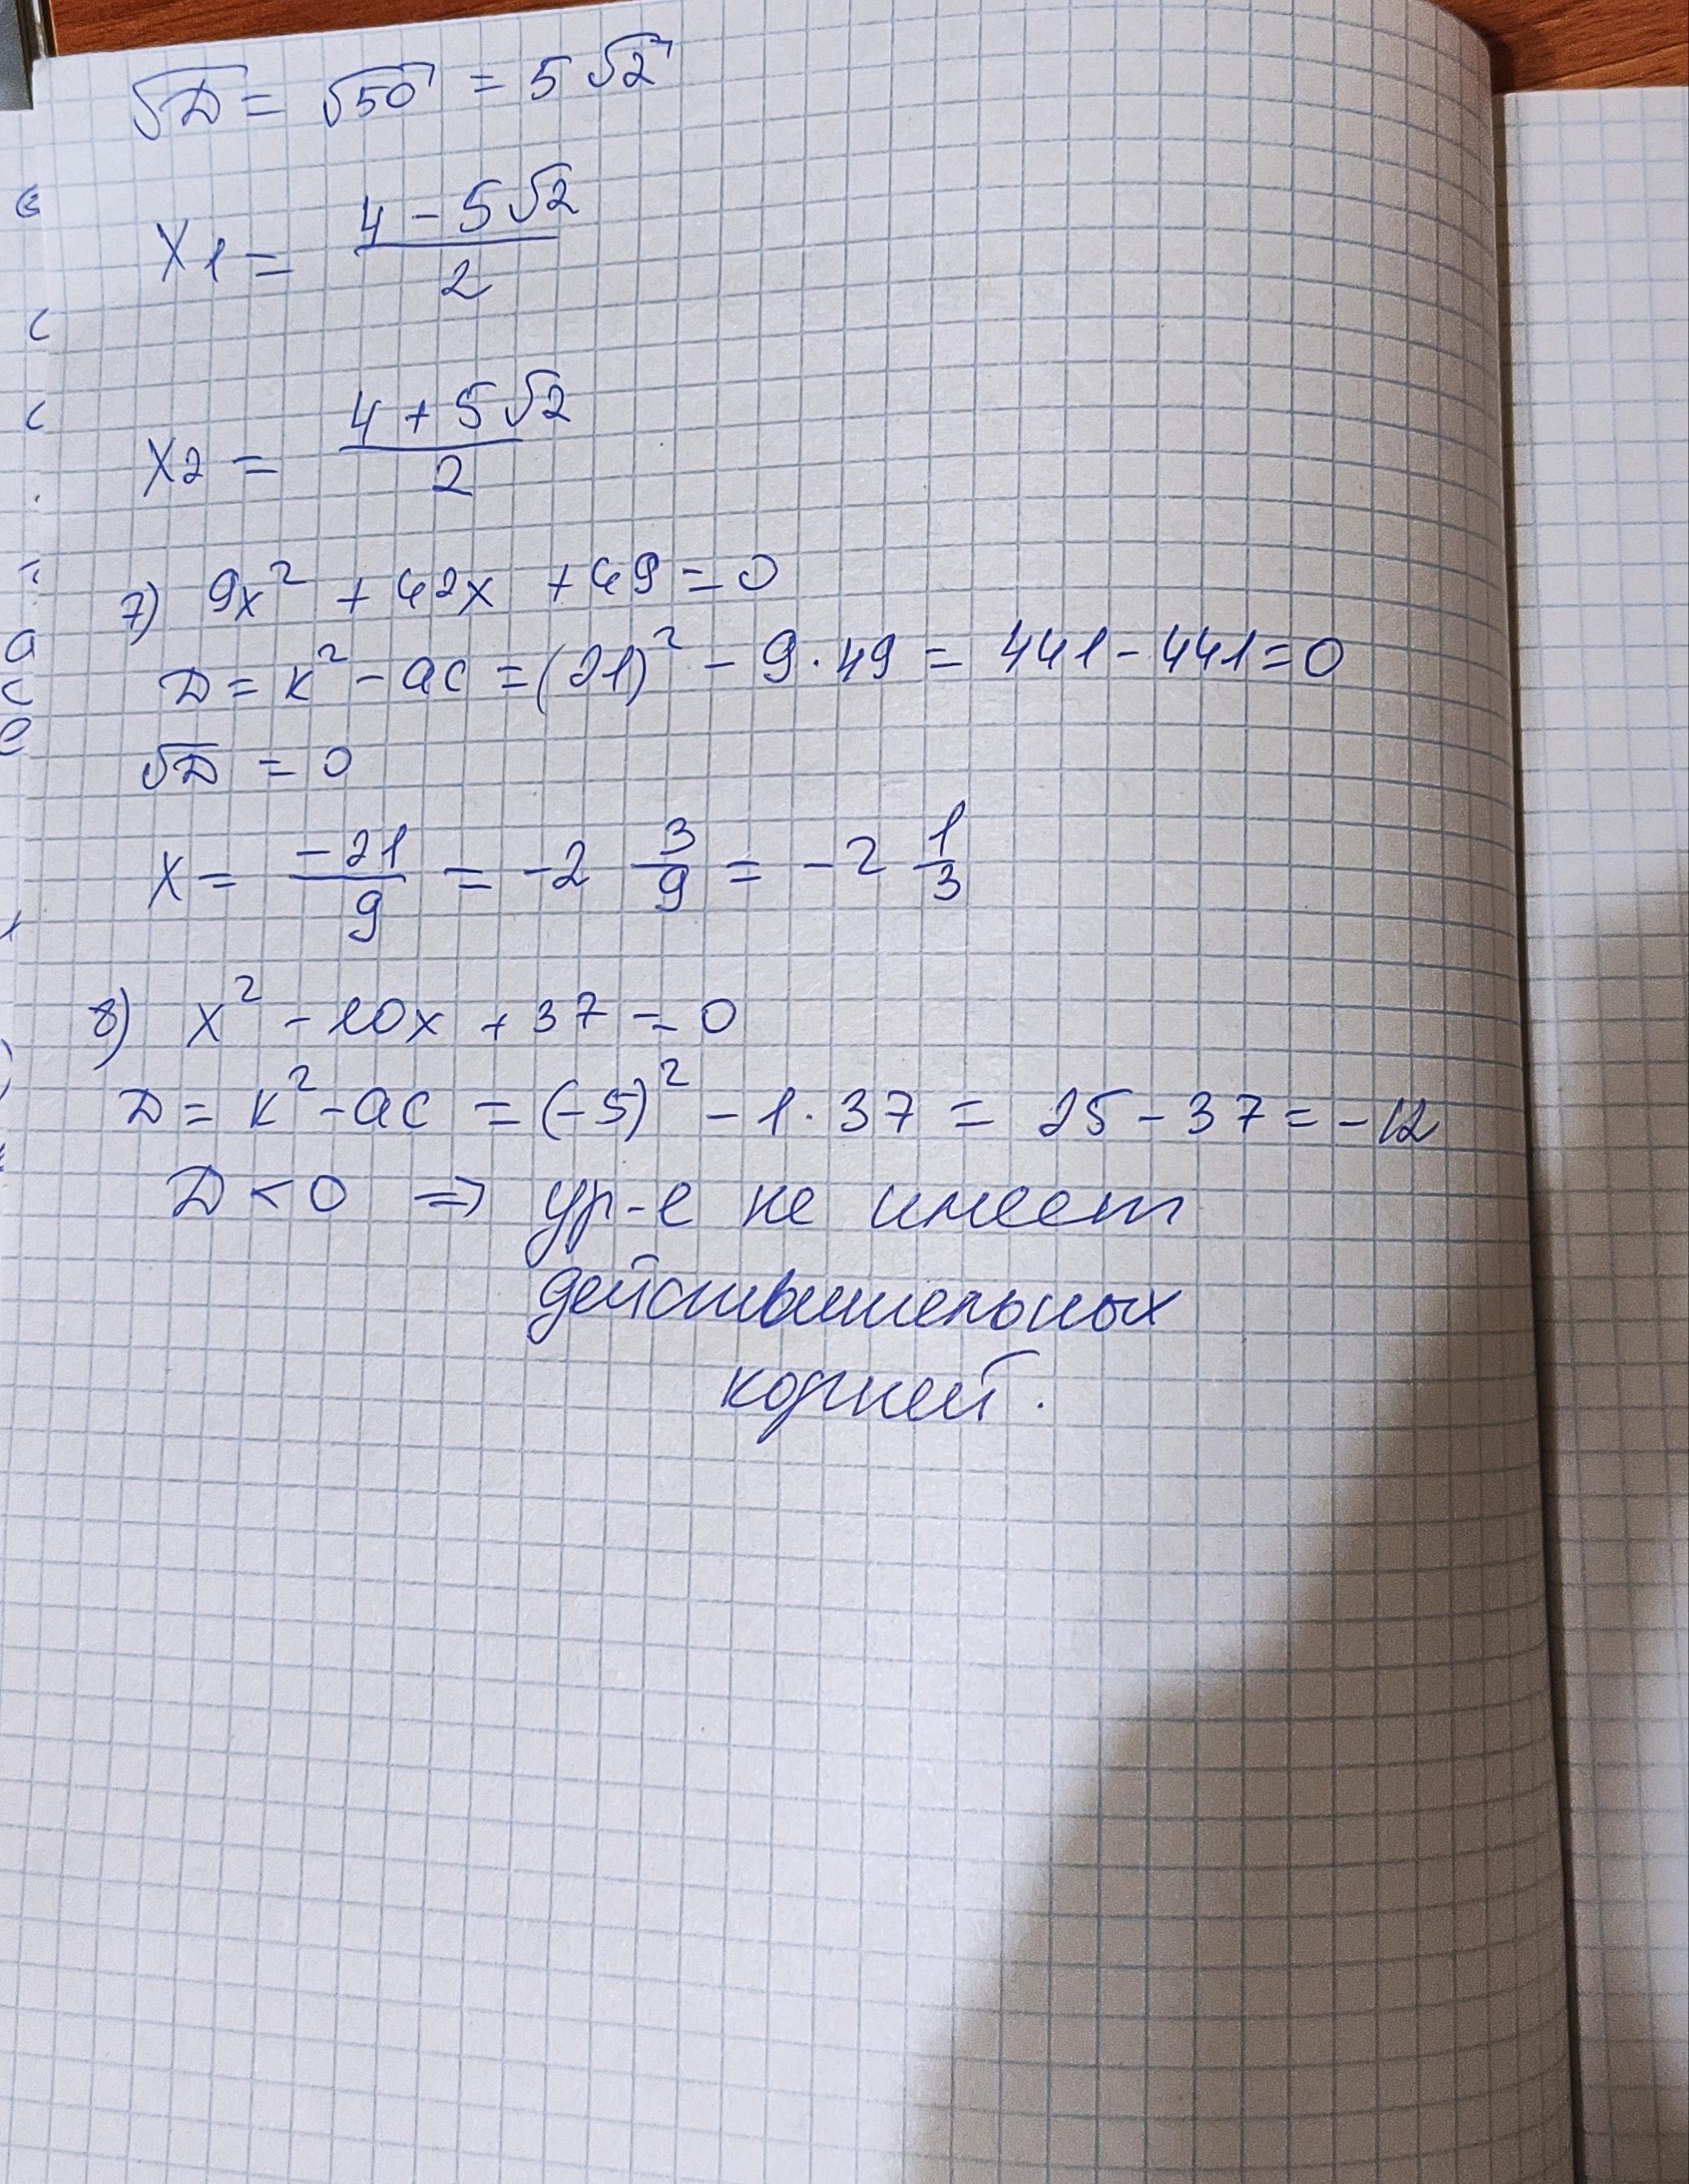 √D = √50 = 5√2
x1 = (4 - 5√2)/2
x2 = (4 + 5√2)/2
7) 9x² + 42x + 49 = 0
D = k² - ac = (21)² - 9·49 = 441 - 441 = 0
√D = 0
x = -21/9 = -2 3/9 = -2 1/3
8) x² - 10x + 37 = 0
D = k² - ac = (-5)² - 1·37 = 25 - 37 = -12
D < 0 ⇒ ур-е не имеет
действительных
корней.